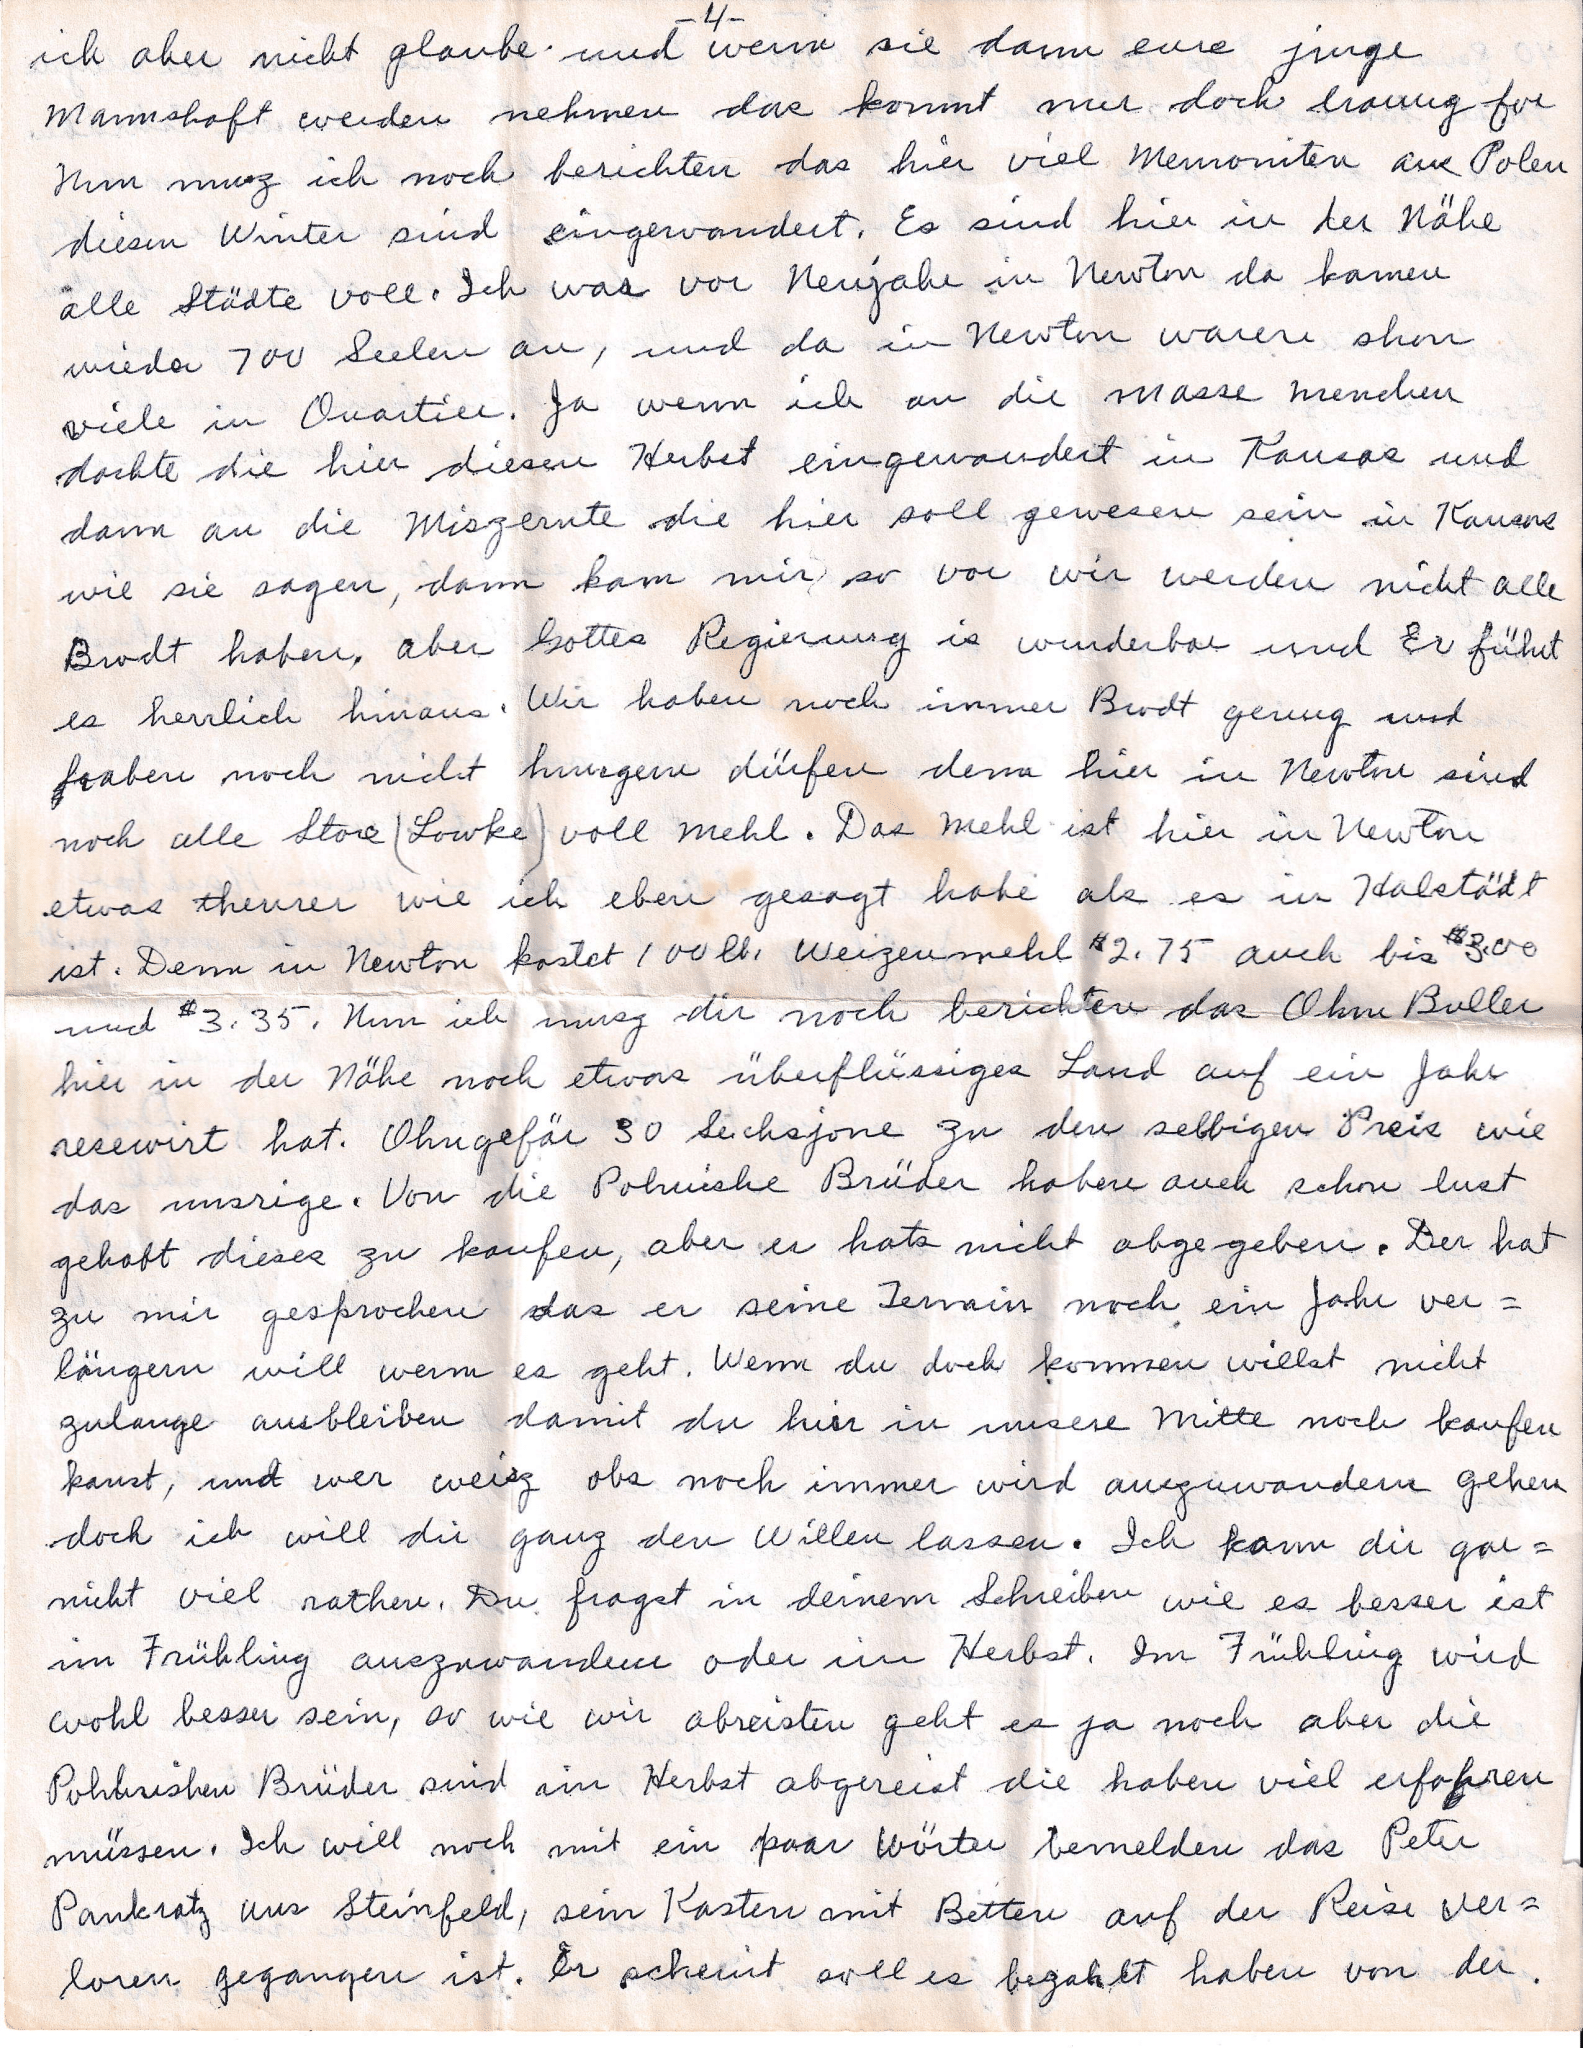 -4-
ich aber nicht glaube und wenn sie dann eure junge
Mannshaft werden nehmen das kommt mir doch traurig for
Nun musz ich noch berichten das hier viel Mennoniten aus Polen
diesen Winter sind eingewandert. Es sind hier in der Nähe
alle Städte voll. Ich was vor Neujahr in Newton da kamen
wieder 700 Seelen an, und da in Newton waren shon
viele in Quartier. Ja wenn ich an die masse menchen
dachte die hier diesen Herbst eingewandert in Kansas und
dann an die Miszernte die hier soll gewesen sein in Kansas
wie sie sagen, dann kam mir so vor wir werden nicht alle
Brodt haben. aber Gottes Regierung is wunderbar und Er führt
es herrlich hinaus. Wir haben noch immer Brodt genug und
haben noch nicht hungern dürfen denn hier in Newton sind
noch alle Store (Lowke) voll Mehl. Das Mehl ist hier in Newton
etwas theurer wie ich eben gesagt habe als es in Halstädt
ist. Denn in Newton kostet 100 lb. Weizenmehl $2.75 auch bis $3.00
und $3.35. Nun ich musz dir noch berichten das Ohm Buller
hier in der Nähe noch etwas überflüssiges Land auf ein Jahr
resewirt hat. Ohngefär 30 Sechsjone zu den selbigen Preis wie
das unsrige. Von die Polnishe Brüder haben auch schon lust
gehabt dieses zu kaufen, aber er hats nicht abgegeben. Der hat
zu mir gesprochen das er seine Termin noch ein Jahr ver=
längern will wenn es geht. Wenn du doch kommen willst nicht
zulange ausbleiben damit du hier in unsere Mitte noch kaufen
kanst, und wer weisz obs noch immer wird auszuwandern gehen
doch ich will dir ganz den Willen lassen. Ich kann dir gar=
nicht viel rathen. Du fragst in deinem Schreiben wie es besser ist
im Frühling auszuwandern oder im Herbst. Im Frühling wird
wohl besser sein, so wie wir abreisten geht es ja noch aber die
Pohlnishen Brüder sind im Herbst abgereist die haben viel erfahren
müssen. Ich will noch mit ein paar Wörter bemelden das Peter
Pankratz aus Steinfeld, sein Kasten mit Betten auf der Reise ver=
loren gegangen ist. Er scheint soll es bezahlt haben von der.